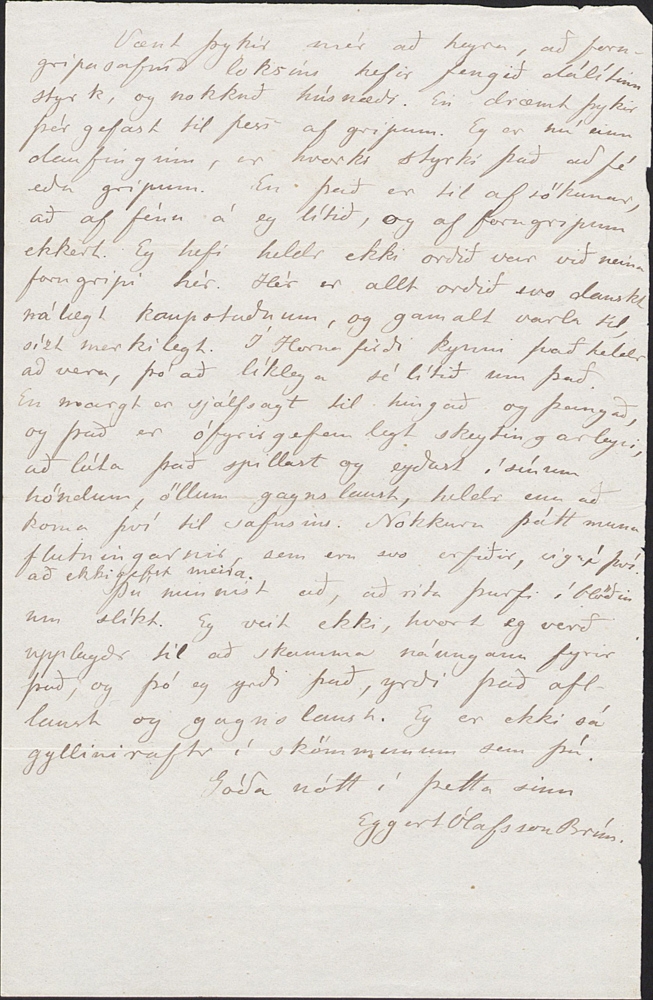 Vænt þykir mér að heyra, að forn-
gripasafnið loksins hefir fengið dálítinn
styrk, og nokkuð húsnæði. En dræmt þykir
þér gefast til þess af gripum. Eg er nú einn
daufinginn, er hvorki styrki það að fé
eða gripum. En það er til afsökunar,
að af fénu á eg lítið, og af forngripum
ekkert. Eg hefi heldr ekki orðið var við neina
forngripi hér. Hér er allt orðið svo danskt
nálægt kaupstuðnum, og gamalt varla til,
sízt merkilegt. Í Hornafirði kynni það heldr
að vera, þó að líklega sé lítið um það.
En margt er sjálfsagt til hingað og þangað,
og það er ófyrirgefanlegt skeytingarleysi,
að láta það spillast og eyðast í sínum
höndum, öllum gagnslaust, heldr enn að
koma því til safnsins. Nokkurn þátt munu
flutningarnir, sem eru svo erfiðir, eiga í því
að ekki gefst meira.
Þú minnist að, að rita þurfi í blöðin
um slíkt. Eg veit ekki, hvort eg verð
upplagðr til að skamma náungann fyrir
það, og þó eg yrði það, yrði það afl-
laust og gagnslaust. Eg er ekki sá
gylliniraftr í skömmunum sem þú.
Góða nótt í þetta sinn
Eggert Ólafsson Brím.